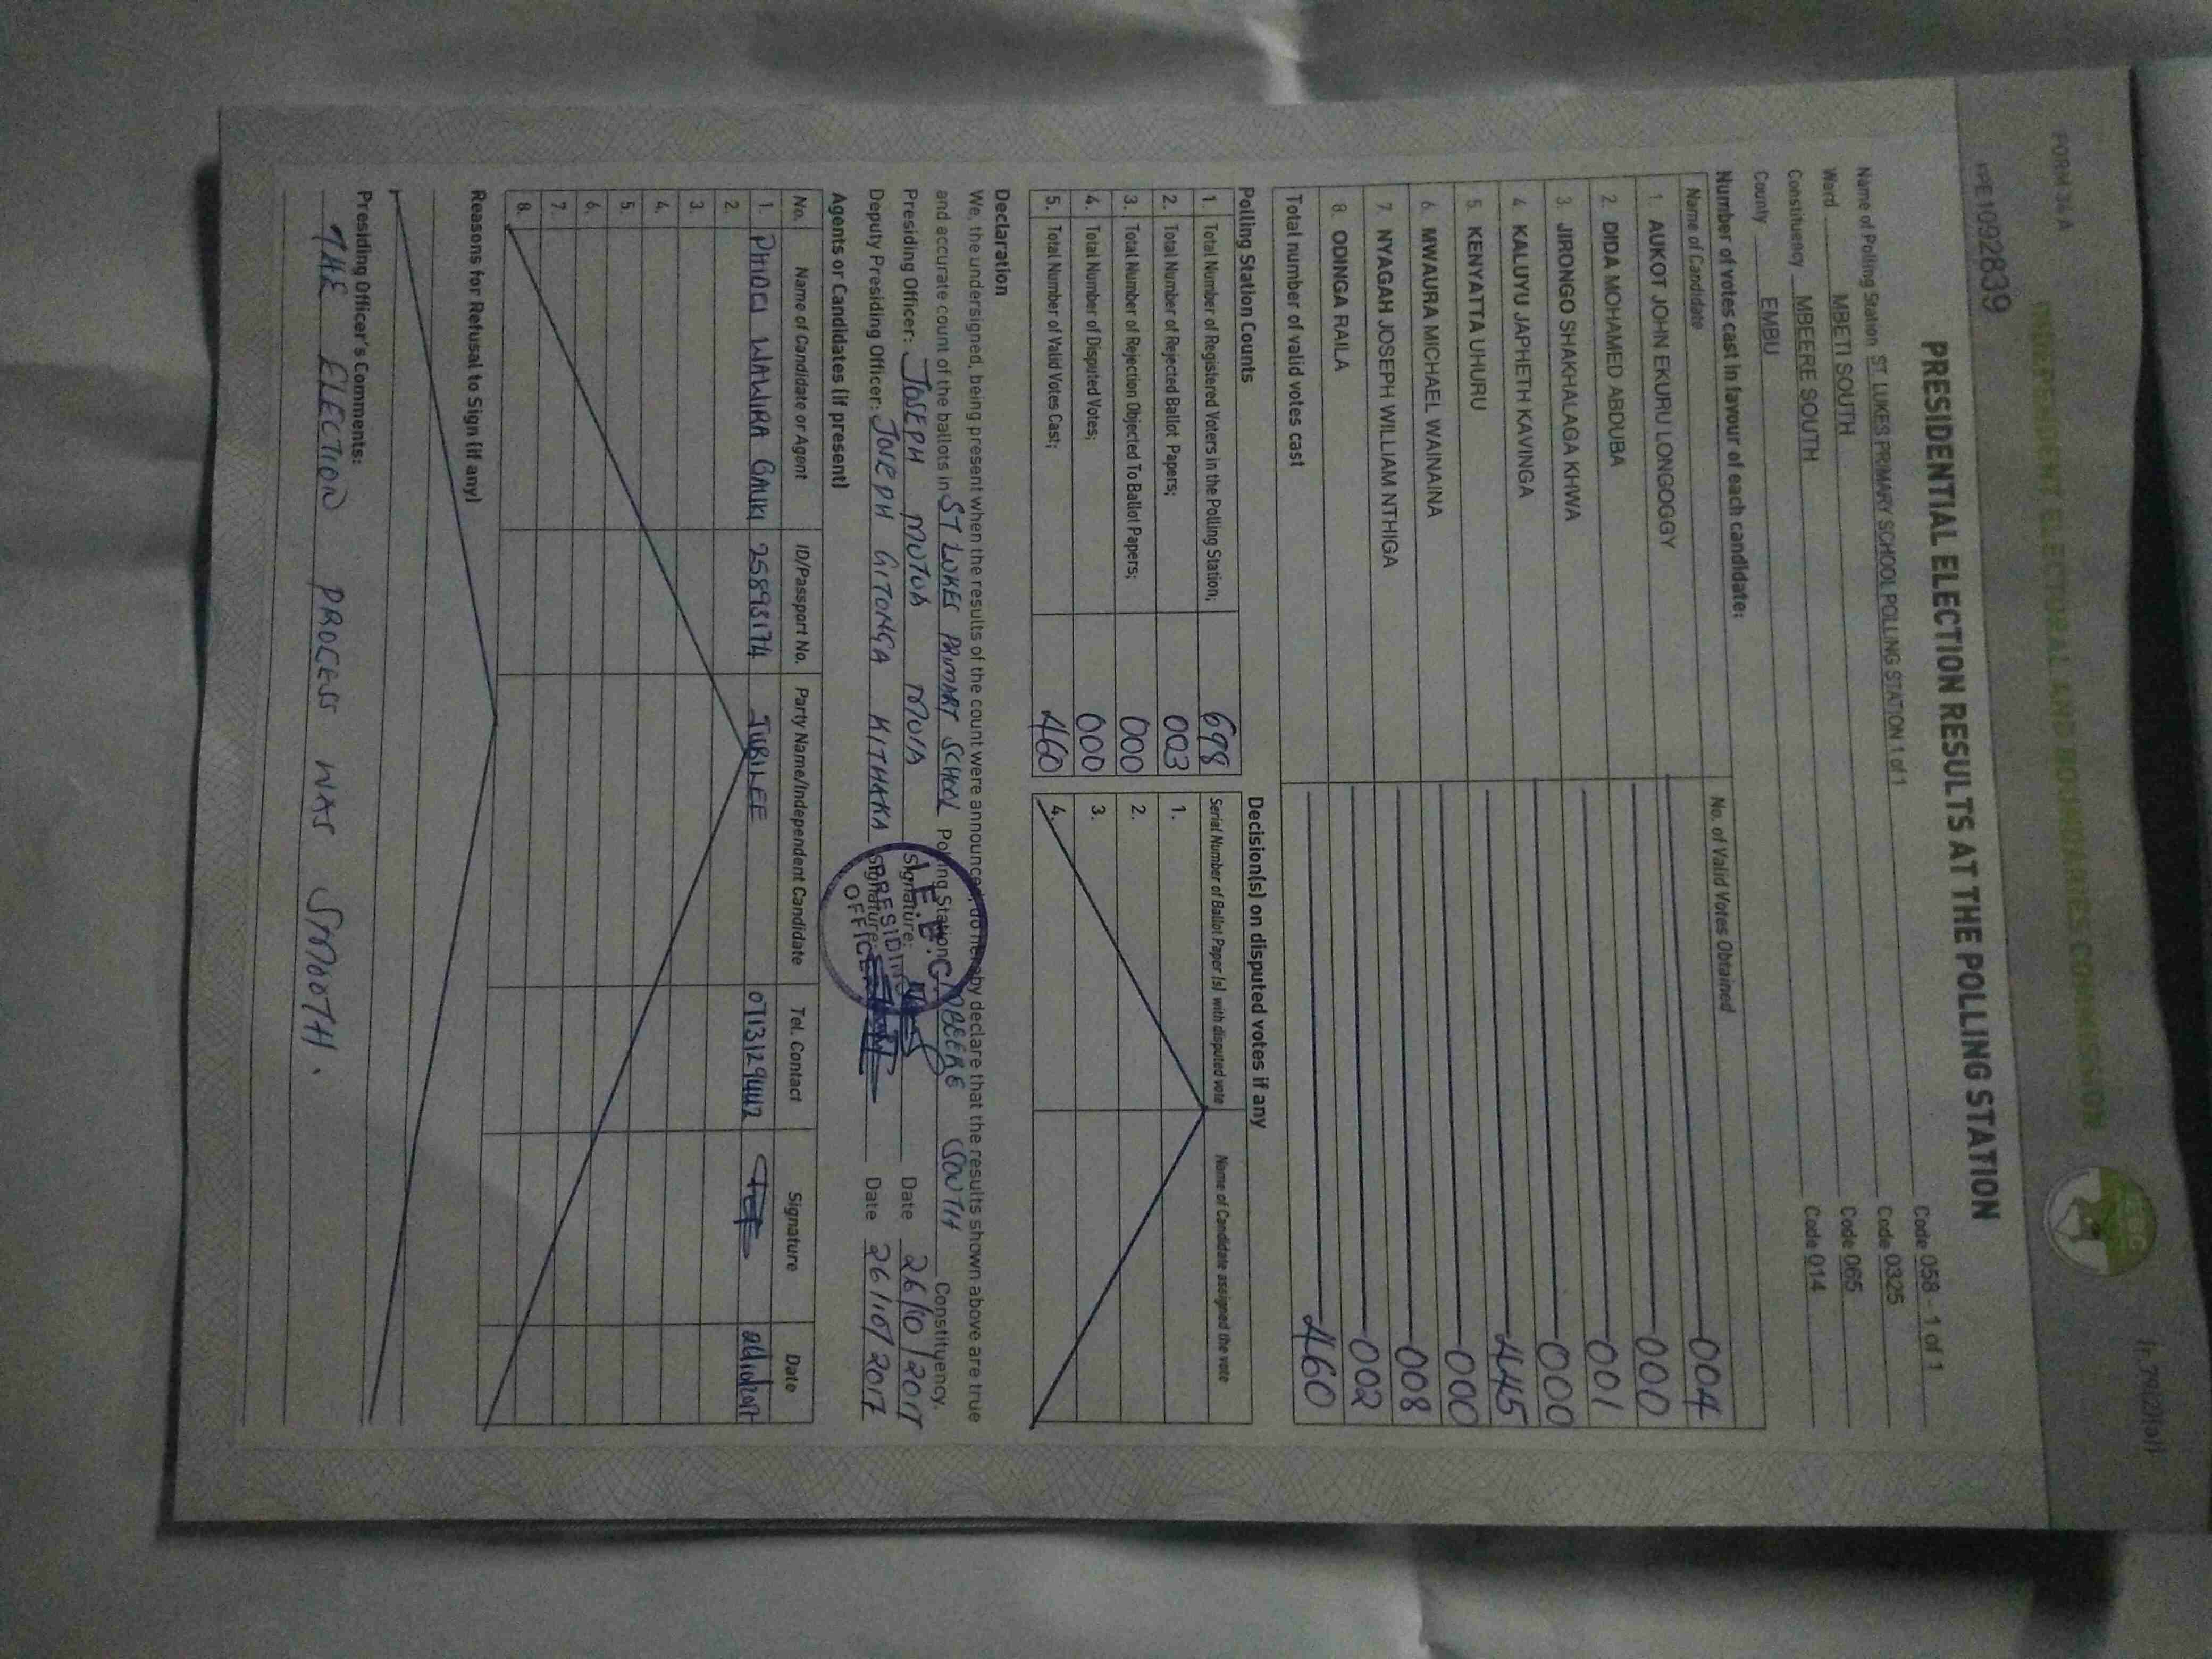 FORM 34 A
INDEPENDENT ELECTORAL AND BOUNDARIES COMMISSION
IEBC
PRESIDENTIAL ELECTION RESULTS AT THE POLLING STATION
Name of Polling Station ST. LUKES PRIMARY SCHOOL POLLING STATION 1 of 1 Code 058 - 1 of 1
Ward MBETI SOUTH Code 0325
Constituency MBEERE SOUTH Code 065
County EMBU Code 014
Number of votes cast in favour of each candidate:
Name of Candidate No. of Valid Votes Obtained
1. AUKOT JOHN EKURU LONGOGGY 004
2. DIDA MOHAMED ABDUBA 000
3. JIRONGO SHAKHALAGA KHWA 001
4. KALUYU JAPHETH KAVINGA 000
5. KENYATTA UHURU 445
6. MWAURA MICHAEL WAINAINA 000
7. NYAGAH JOSEPH WILLIAM NTHIGA 008
8. ODINGA RAILA 002
Total number of valid votes cast 460
Polling Station Counts
1. Total Number of Registered Voters in the Polling Station; 698
2. Total Number of Rejected Ballot Papers; 003
3. Total Number of Rejection Objected To Ballot Papers; 000
4. Total Number of Disputed Votes; 000
5. Total Number of Valid Votes Cast; 460
Decision(s) on disputed votes if any
Serial Number of Ballot Paper (s) with disputed vote Name of Candidate assigned the vote
1.
2.
3.
4.
Declaration
We, the undersigned, being present when the results of the count were announced, do hereby declare that the results shown above are true
and accurate count of the ballots in ST LUKES PRIMARY SCHOOL Polling Station MBEERE SOUTH Constituency.
Presiding Officer: JOSEPH MUTUA MUIA Signature: Date 26/10/2017
Deputy Presiding Officer: JOSEPH GITONGA KITHAKA Signature: Date 26/10/2017
I.E.B.C.
PRESIDING
OFFICER
Agents or Candidates (if present)
No. Name of Candidate or Agent ID/Passport No. Party Name/Independent Candidate Tel. Contact Signature Date
1. WAWIRA JUBILEE
2.
3.
4.
5.
6.
7.
8.
Reasons for Refusal to Sign (if any)
Presiding Officer's Comments:
THE ELECTION PROCESS WAS SMOOTH.